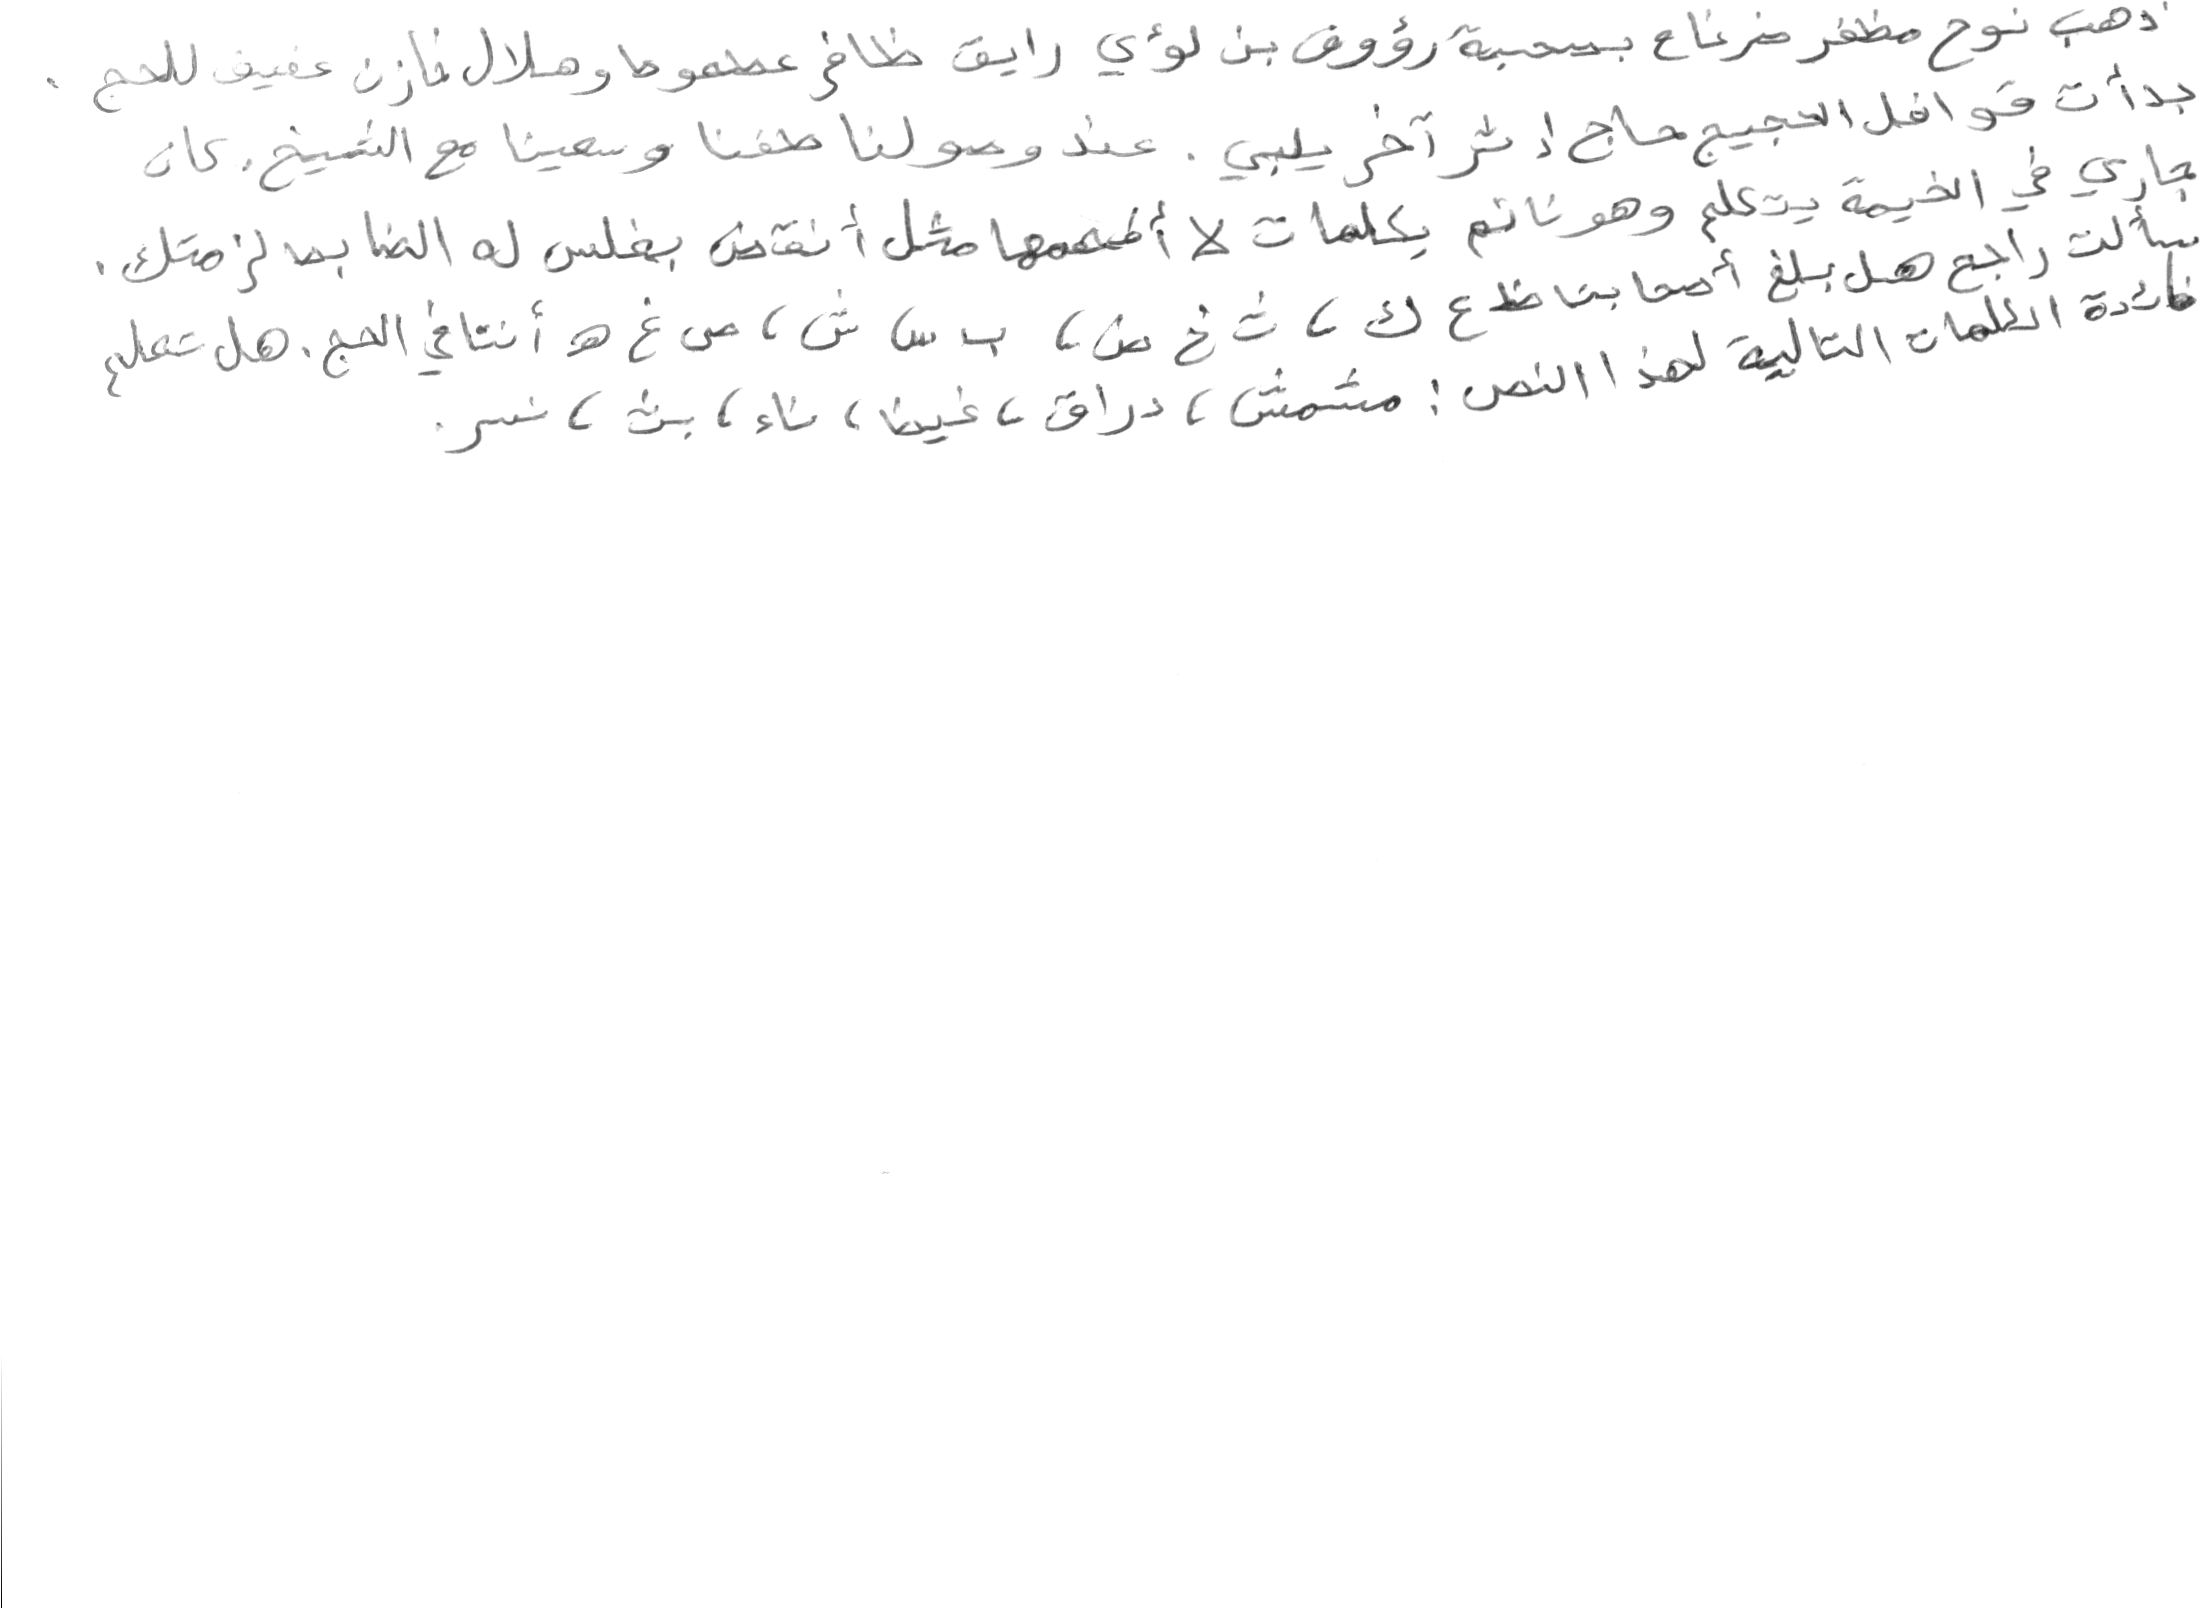 ذهب نوح مظفر ضرغام بصحبة رؤوف بن لؤي رايق ظافر عطعوط وهلال فازن عفيف للحج .
بدأت قوافل الحجيج حاج إثر آخر يلبي . عند وصولنا طفنا وسعينا مع الشيخ . كان
جاري في الخيمة يتكلم وهو نائم بكلمات لا أفهمها مثل أنقض بغلس له الضابط لزمتك .
سألت راجح هل بلغ أصحابنا ظ ع ك ، ث خ ض ، ب س ش ، ص غ ه أننا في الحج . هل تعلم
فائدة الكلمات التالية لهذا النص : مشمش ، دراق ، غيظ ، ناء ، بث ، نسر .